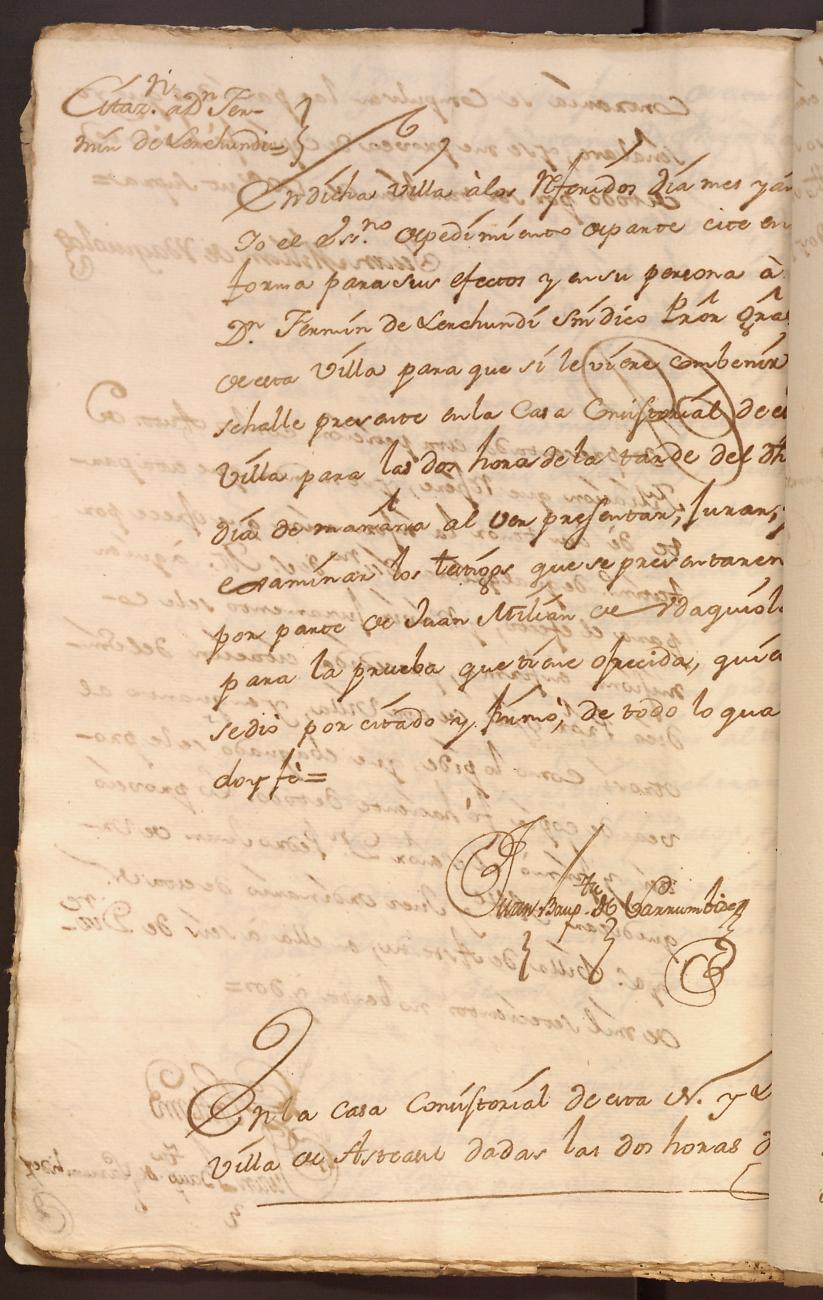 Citazⁿ. a Dⁿ Fer-
min de Lerchundi=
En dicha Villa à los rreferidos dia mes y añ
Yo el Essⁿᵒ depedimiento de parte cite en
forma para sus efectos y en su persona à
Dⁿ. Fermin de Lerchundi Sindico Prõr Grãl
de esta Villa para que si le viere combenir
se halle presente en la Casa Consistorial de es
Villa para las dos hora de la tarde del dh
dia de mañana al ver presentar, Jurar, y
examinar los testigos que se presentaren
por parte de Juan Milian de
para la prueba que tiene ofrecida, quie
se dió por citado y firmó, de todo lo qua
doy fé=
Juan Bapᵗᵃ de Larrumbide
En la casa Consistorial de esta N. y L
Villa de Asteasu dadas las dos horas d